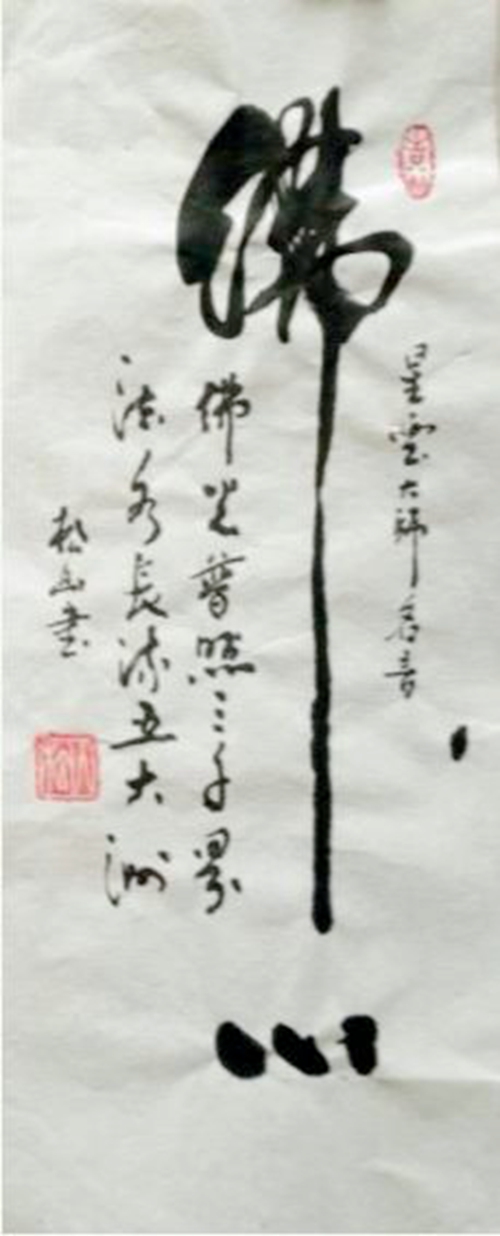 佛心
星雲大師名言
佛光普照三千界
法水長流五大洲
松山書